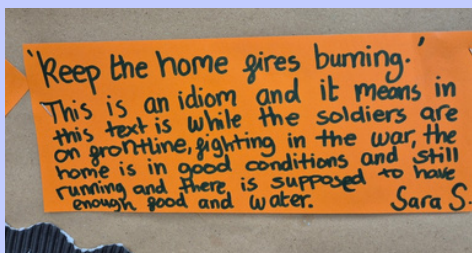 'Keep the home fires burning.'
This is an idiom and it means in
this text is while the soldiers are
on frontline, fighting in the war, the
home is in good conditions and still
running and there is supposed to have
enough food and water. Sara S.